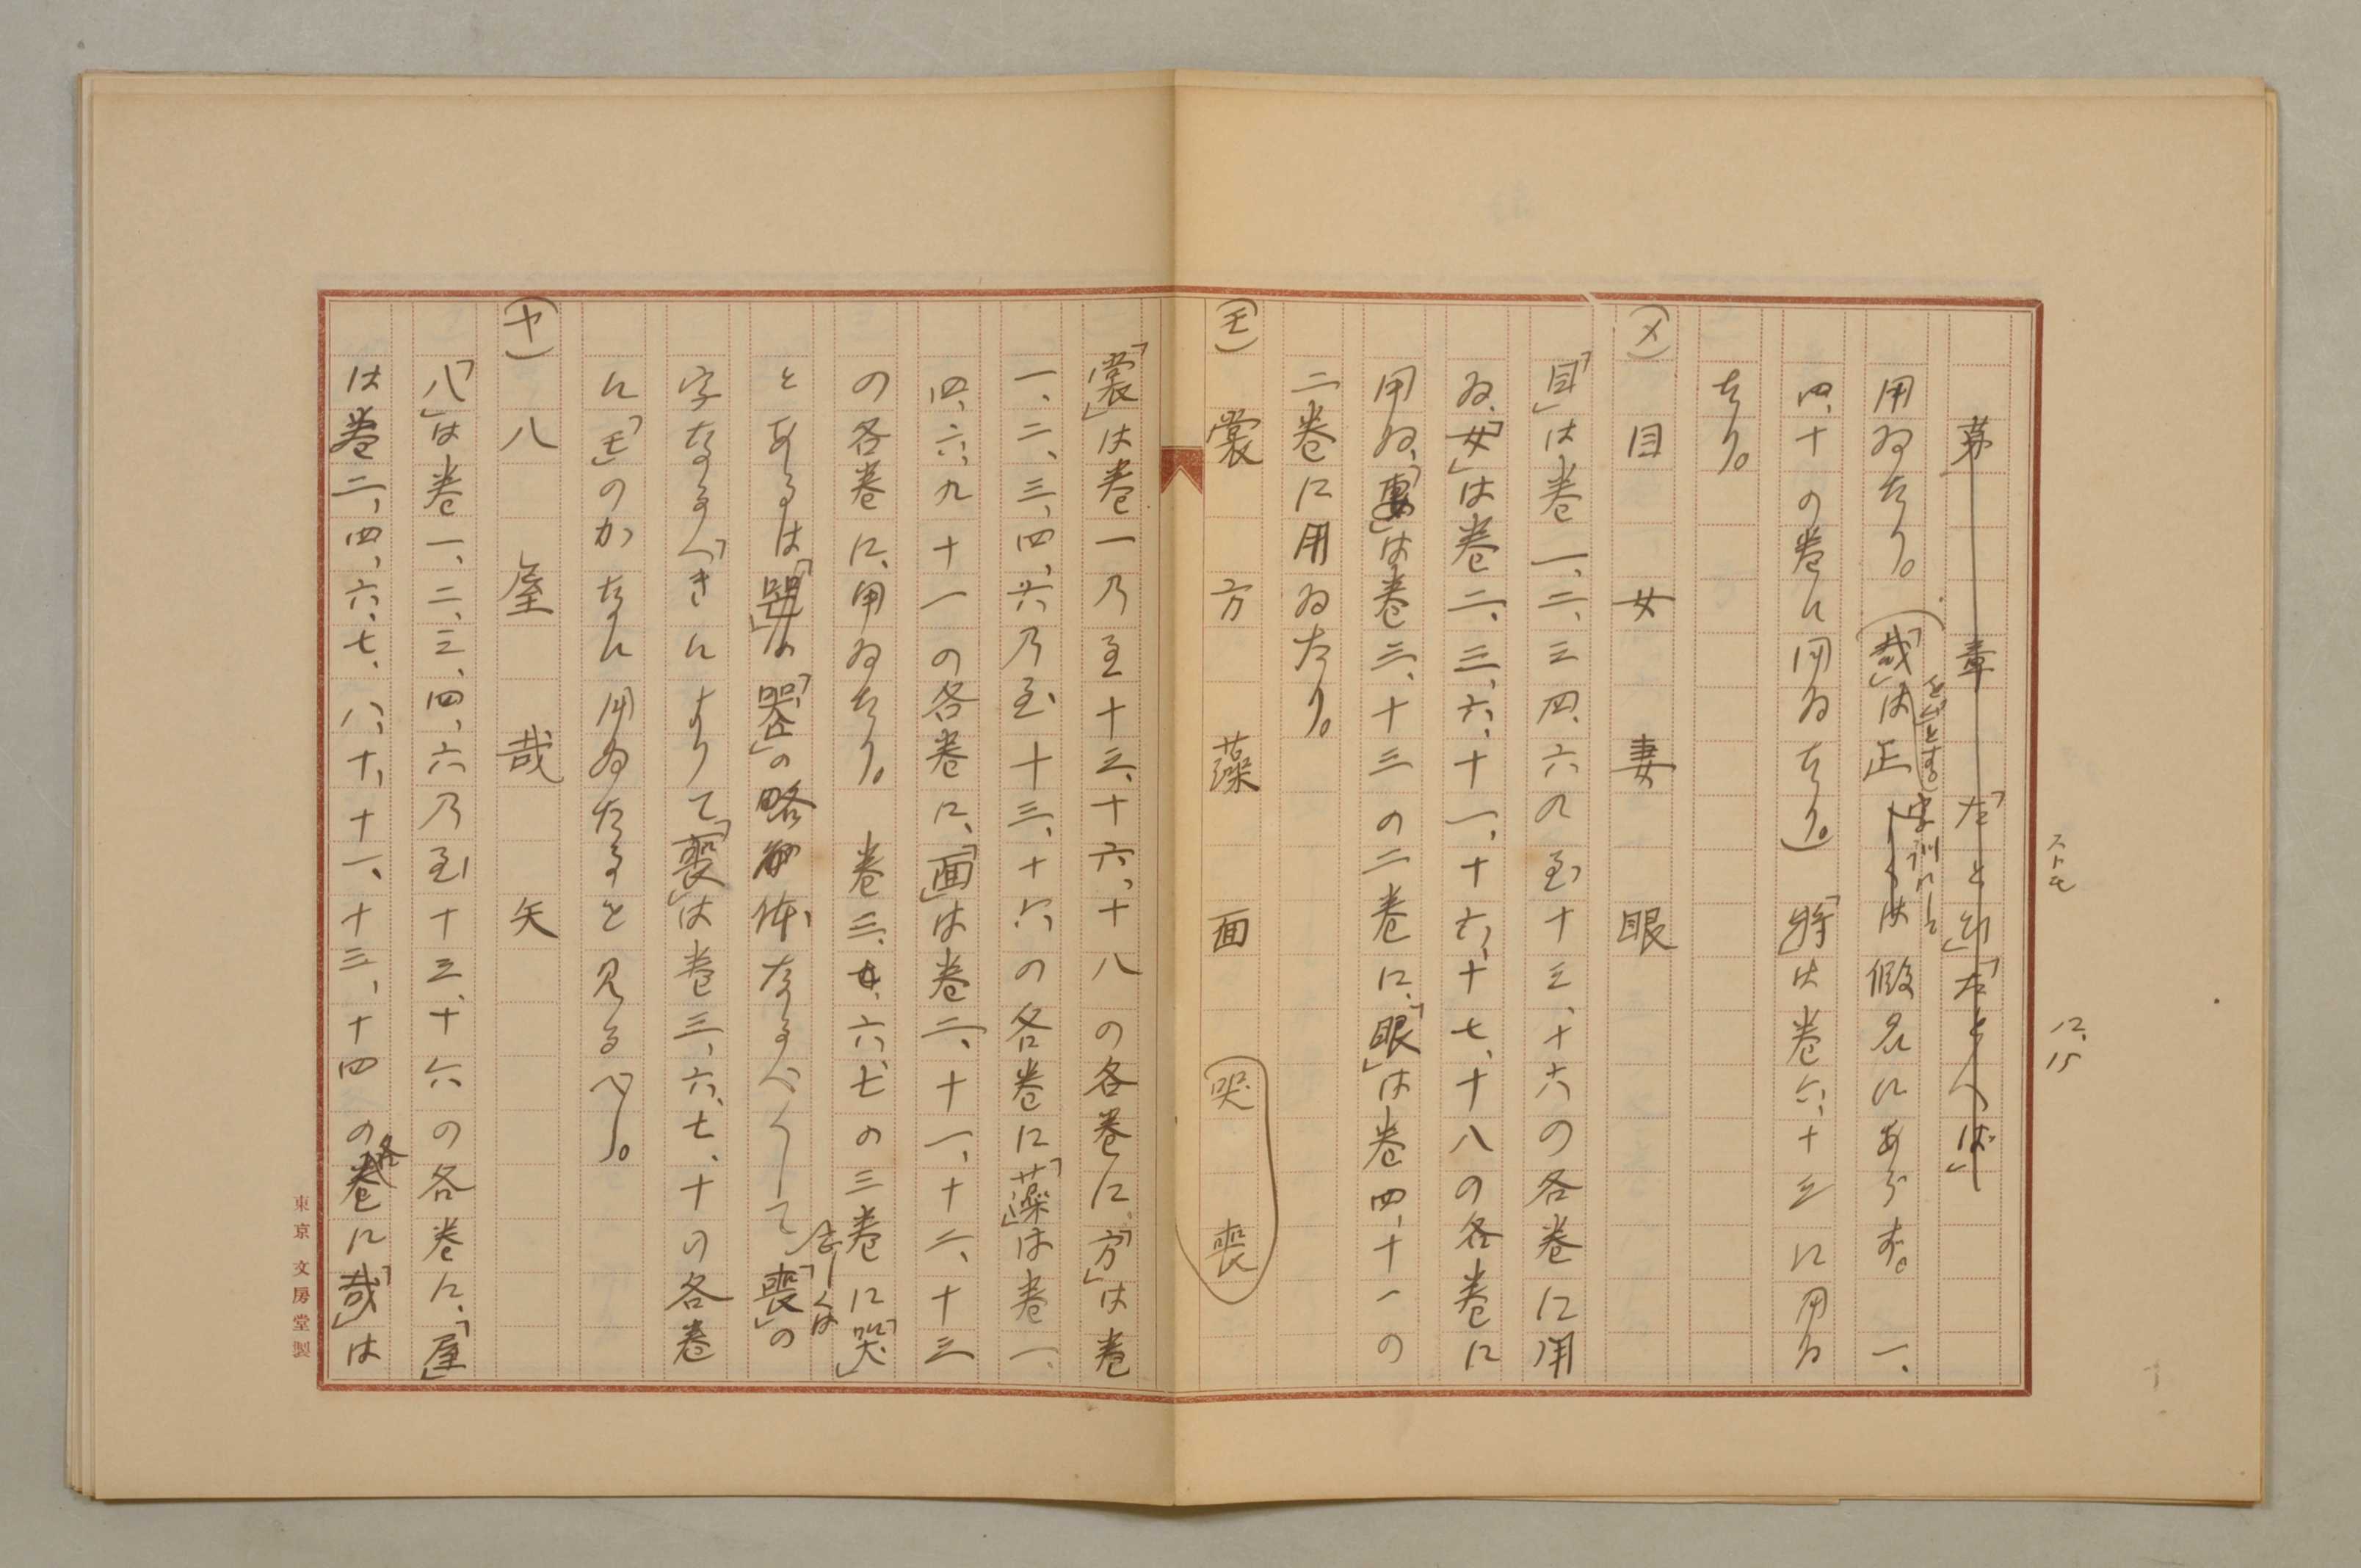 ストモ 12.15
第 章 「た」とひ」「た」とへば」
用ゐたり。(「哉」は正しくは假名にあらず。一、
をむとす。字訓にし
四、十の巻に用ゐたり。)「將」は巻六、十三に用ゐ
たり。
(メ) 目 女 妻 眼
「目」は巻一、二、三四、六乃至十三、十六の各巻に用
ゐ、「女」は巻二、三、六、十一、十六、十七、十八の各巻に
用ゐ、「妻」は巻三、十三の二巻に、「眼」は巻四、十一の
二巻に用ゐたり。
(モ) 裳 方 藻 面 哭 喪
「裳」は巻一乃至十三、十六、十八の各巻に、「方」は巻
一、二、三、四、六乃至十三、十六の各巻に「藻」は巻一、
四、六、九十一の各巻に、「面」は巻二、十一、十二、十三
の各巻に、用ゐたり。 巻三、六、七の三巻に「哭」
もしくは
とあるは「」は「」の略體なるべくして、「喪」の
字なるべきによりて「喪」は巻三、六、七、十の各巻
に「モ」のかなに用ゐたると見るべし。
(ヤ) 八 屋 哉 矢
「八」は巻一、二、三、四、六乃至十三、十六の各巻に、「屋」
は巻二、四、六、七、八、十、十一、十三、十四の各巻に「哉」は
東京 文房堂製